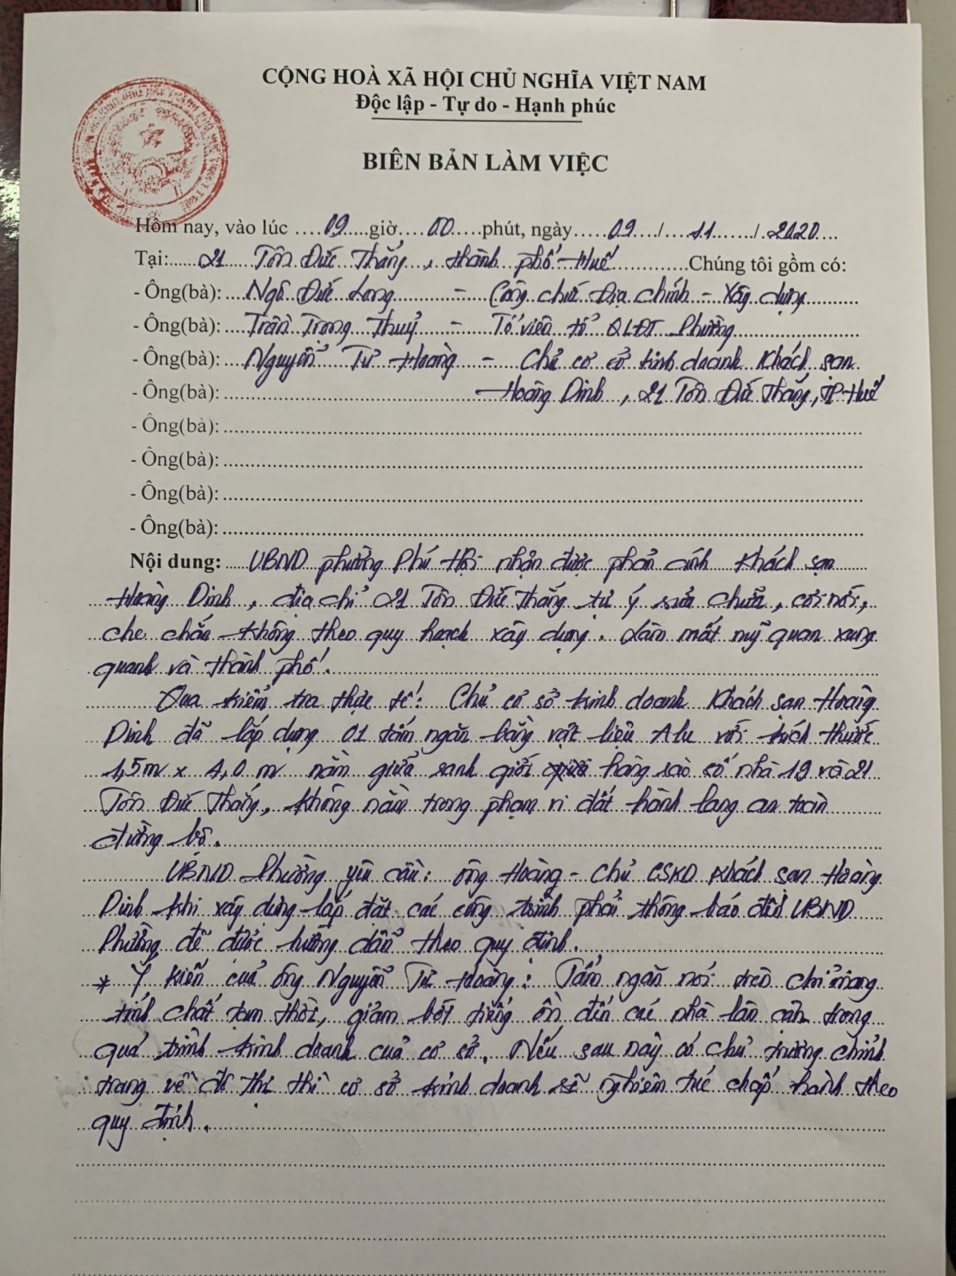 CỘNG HOÀ XÃ HỘI CHỦ NGHĨA VIỆT NAM
Độc lập - Tự do - Hạnh phúc
BIÊN BẢN LÀM VIỆC
Hôm nay, vào lúc ....09....giờ ....00....phút, ngày.....09.../....11....../..2020...
Tại:......21.....Tôn Đức Thắng, thành phố Huế............Chúng tôi gồm có:
- Ông(bà): Ngô Đức Long - Công chức Địa chính - Xây dựng
- Ông(bà): Trần Trọng Thuỷ - Tổ viên tổ QLĐT Phường
- Ông(bà): Nguyễn Tư Hoàng - Chủ cơ sở kinh doanh Khách sạn
- Ông(bà): Hoàng Dinh, 21 Tôn Đức Thắng, TP Huế
- Ông(bà):
- Ông(bà):
- Ông(bà):
- Ông(bà):
Nội dung: UBND phường Phú Hội nhận được phản ánh Khách sạn
Hoàng Dinh, địa chỉ 21 Tôn Đức Thắng tự ý sửa chữa, cơi nới,
che chắn không theo quy hoạch xây dựng. Làm mất mỹ quan xung
quanh và thành phố.
Qua kiểm tra thực tế: Chủ cơ sở kinh doanh Khách sạn Hoàng
Dinh đã lắp dựng 01 tấm ngăn bằng vật liệu Alu với kích thước
1,5m x 4,0 m nằm giữa ranh giới hàng rào số nhà 19 và 21
Tôn Đức Thắng, không nằm trong phạm vi đất hành lang an toàn
đường bộ.
UBND Phường yêu cầu: ông Hoàng - Chủ CSKD Khách sạn Hoàng
Dinh khi xây dựng lắp đặt các công trình phải thông báo đến UBND
Phường để được hướng dẫn theo quy định.
* Ý kiến của ông Nguyễn Tư Hoàng: Tấm ngăn nói trên chỉ mang
tính chất tạm thời, giảm bớt tiếng ồn đến các nhà lân cận trong
quá trình kinh doanh của cơ sở. Nếu sau này có chủ trương chỉnh
trang về đô thị thì cơ sở kinh doanh sẽ nghiêm túc chấp hành theo
quy định.